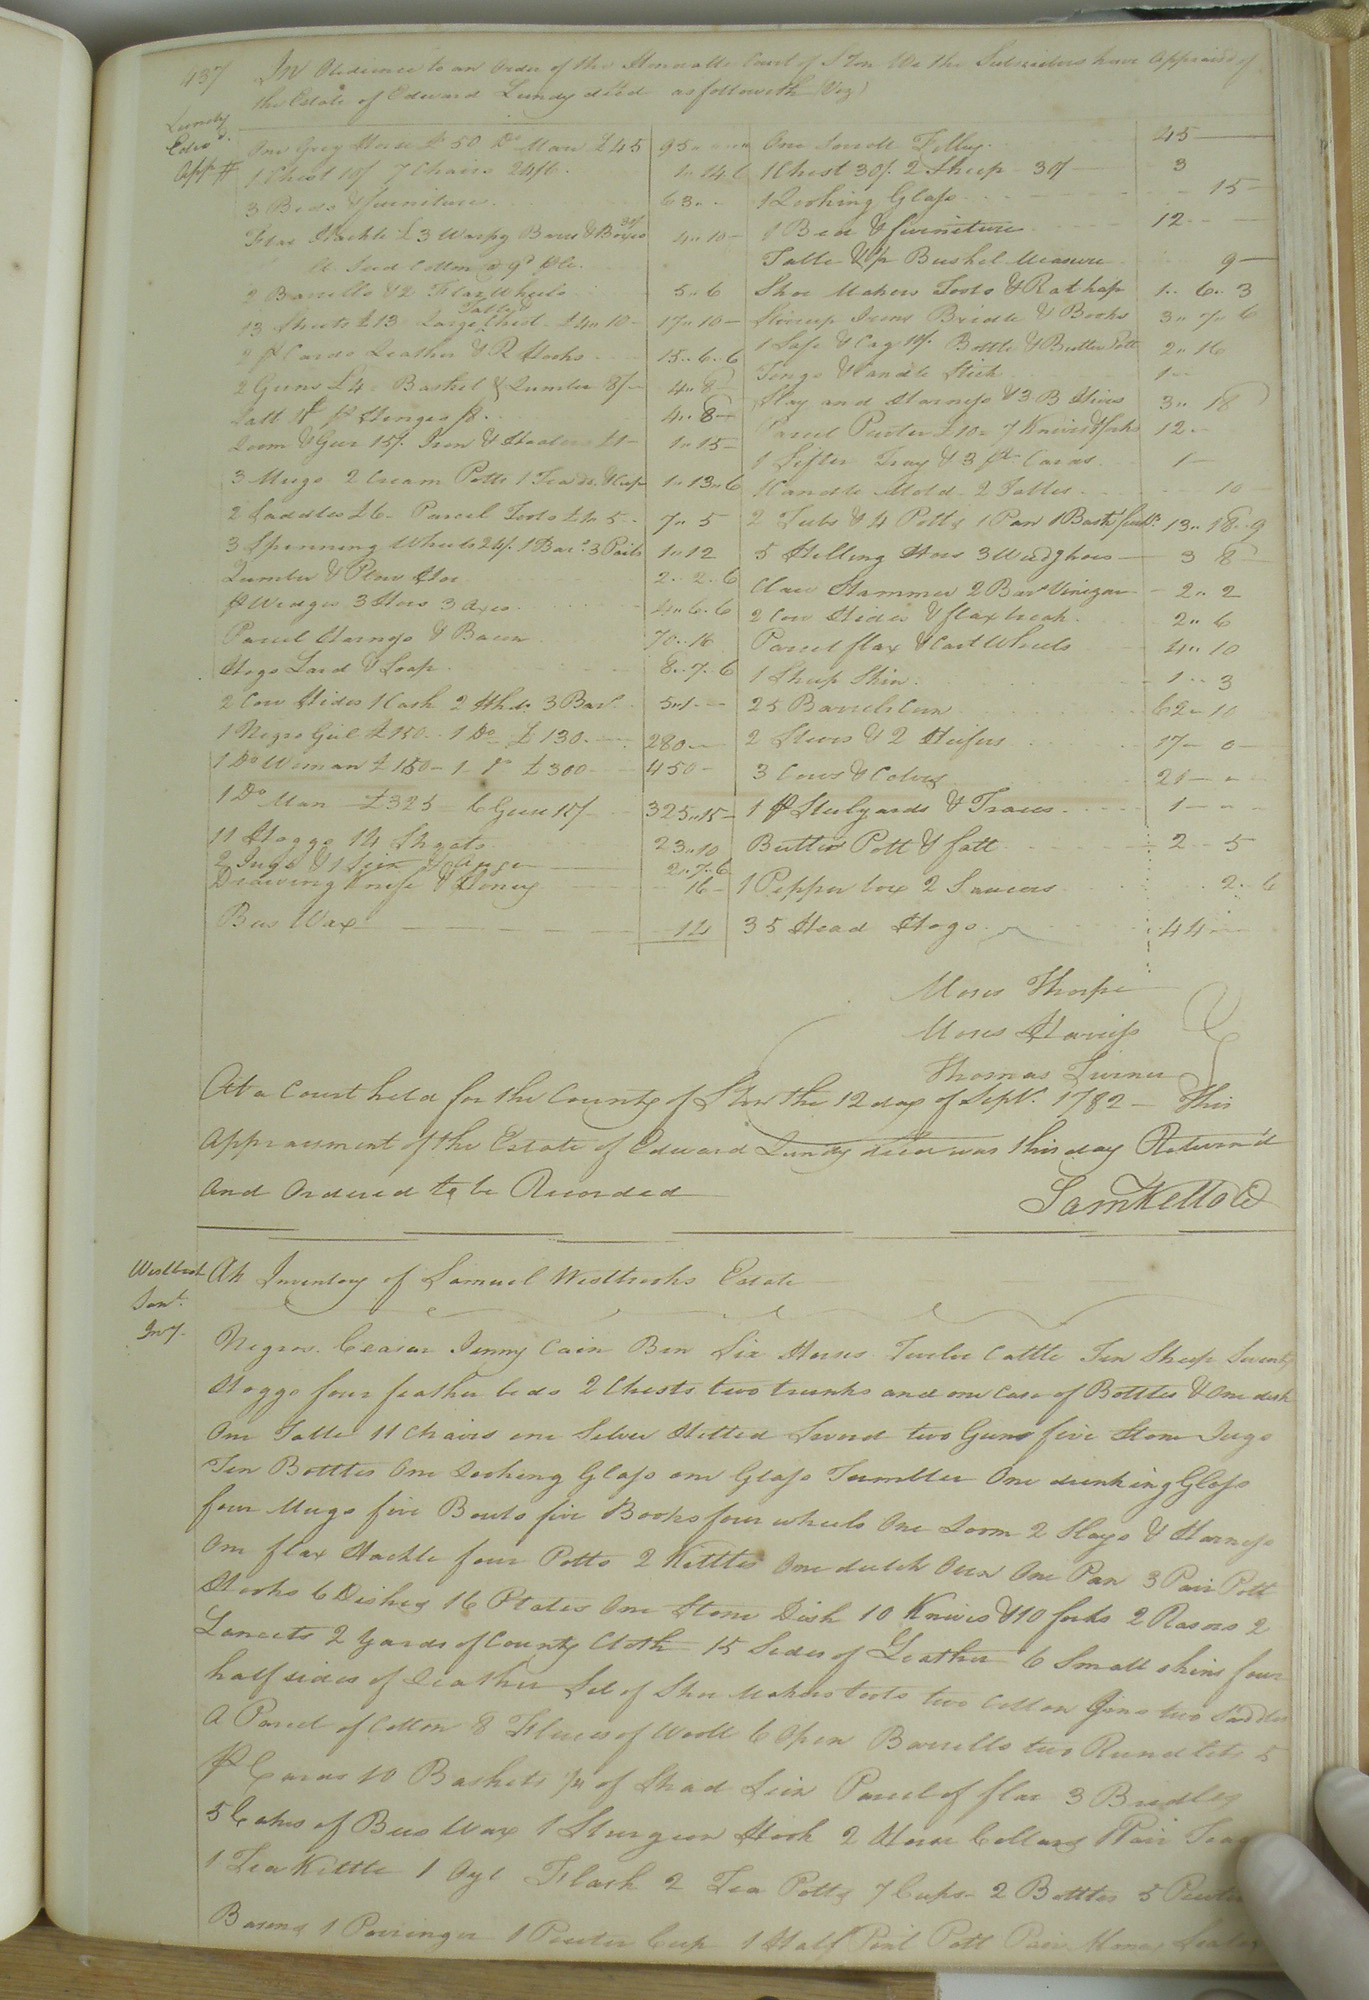 437
In Obedience to an Order of the Honorable Court of S'Ton We the Subscribers have Appraised
the Estate of Edward Lundy dced as followeth (Viz)
Lundy
Edwd.
App
One Grey Horse £50 Do Mare £45 95
1 Chest 10/ 7 Chairs 24/6 1..14 6
3 Beds & furniture 63
Flax Hackle £3 Warpg Bars & Boxes 30/ 4..10
lb Seed Cotton @ 9d
2 Barrells & 2 Flax Wheels 5..6
13 Sheets £13 Large Chest £4..10 17..10
2 pr Cards Leather & R Hooks 15..6..6
2 Guns £4 Basket & Lumber 8/ 4..8
Salt pr Henges 4..8
Loom & Gear 15/ Iron & £1 1..15
3 Mugs 2 Cream Potts 1 1..13..6
2 Saddles £6 Parcel Tools £1..5 7..5
3 Spinning Wheels 24/ 1 Barl 3 Pails 1..12
Lumber & Plow Hoe 2..2..6
pr Wedges 3 Hoes 3 Axes 4..6..6
Parcel Harness & Bacon 70..16
Hogs Lard & Soap 8..7..6
2 Cow Hides 1 Cask 2 Hhds 3 Barl 5..1
1 Negro Girl £150 1 Do £130 280
1 Do Woman £150 1 Do £300 450
1 Do Man £325 6 Geese 15/ 325..15
11 Hoggs 14 Shoats 23..10
2 Jugs & 1 2..7..6
Drawing Knife & Honey 16
Bees Wax 14
One Sorrell Filley 45
1 Chest 30/ 2 Sheep 30/ 3
1 Looking Glass 15
1 Bed & furniture 12
Table & 1/2 Bushel Measure 9
Shoe Makers Tools & Rat trap 1..6..3
Stirrup Irons Bridle & Books 3..7..6
1 Safe & Cag 11/ Bottle & Butter Pott 2..16
Tongs & Candle Stick 1
Slay and Harness & 3 B Hives 3..18
Parcel Pewter £10 7 Knives & forks 12
1 Sifter Tray & 3 pr Cards 1
1 Candle Mold 2 Tables 10
2 Tubs & 4 Potts 1 Pan 1 13..18..9
5 Hilling Hoes 3 Weedg hoes 3 8
Claw Hammer 2 Barl Vinigar 2..2
2 Cow Hides & flax break 2..6
Parcel flax & Cart Wheels 4..10
1 Sheep Skin 1..3
25 Barrels Corn 62..10
2 Steers & 2 Heifers 17 0
3 Cows & Calves 21
1 pr Steelyards & Traces 1
Butter Pott & fatt 2 5
1 Pepper box 2 Saucers 2..6
35 Head Hogs 44
Moses Thorpe
Moses Harriss
Thomas Turner
At a Court held for the County of S'Ton the 12 day of Sept. 1782 This
Appraisment of the Estate of Edward Lundy decd was this day Return'd
and Ordered to be Recorded
Sam Kello Cl
Westbrook
Saml.
Invy.
An Inventory of Samuel Westbrooks Estate
Negros. Ceasar Jenny Cain Ben Six Horses Twelve Cattle Ten Sheep Seventy
Hoggs four feather beds 2 Chests two trunks and one Case of Bottles & One desk
One Table 11 Chairs one Silver Hilted Sword two Guns five Stone Jugs
Ten Bottles One Looking Glass one Glass Tumbler One drinking Glass
four Mugs five Bowls five Books four wheels One Loom 2 Slays & Harness
One flax Hackle four Potts 2 Kittles One dutch Oven One Pan 3 Pair Pott
Hooks 6 Dishes 16 Plates One Stone Dish 10 Knives & 10 forks 2 Rasors 2
Lancets 2 yards of County Cloth 15 Sides of Leather 6 Small skins four
half sides of Leather Set of Shoe Makers tools two Cotton Gins two Saddles
A Parcel of Cotton 8 Fleeces of Wooll 6 Open Barrells two Rundlets 5
pr Cards 10 Baskets 1/4 of Shad Sein Parcel of flax 3 Bridles
5 Cakes of Bees Wax 1 Sturgeon Hook 2 Horse Collars 1 Pair
1 Tea Kittle 1 Oyl Flask 2 Tea Potts 7 Cups 2 Bottles 5 Pewter
Basons 1 Porringer 1 Pewter Cup 1 Half Pint Pott Pair